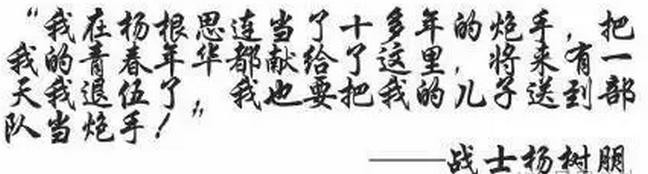 “我在杨根思连当了十多年的炮手，把
我的青春年华都献给了这里，将来有一
天我退伍了，我也要把我的儿子送到部
队当炮手！”
——战士杨树朋